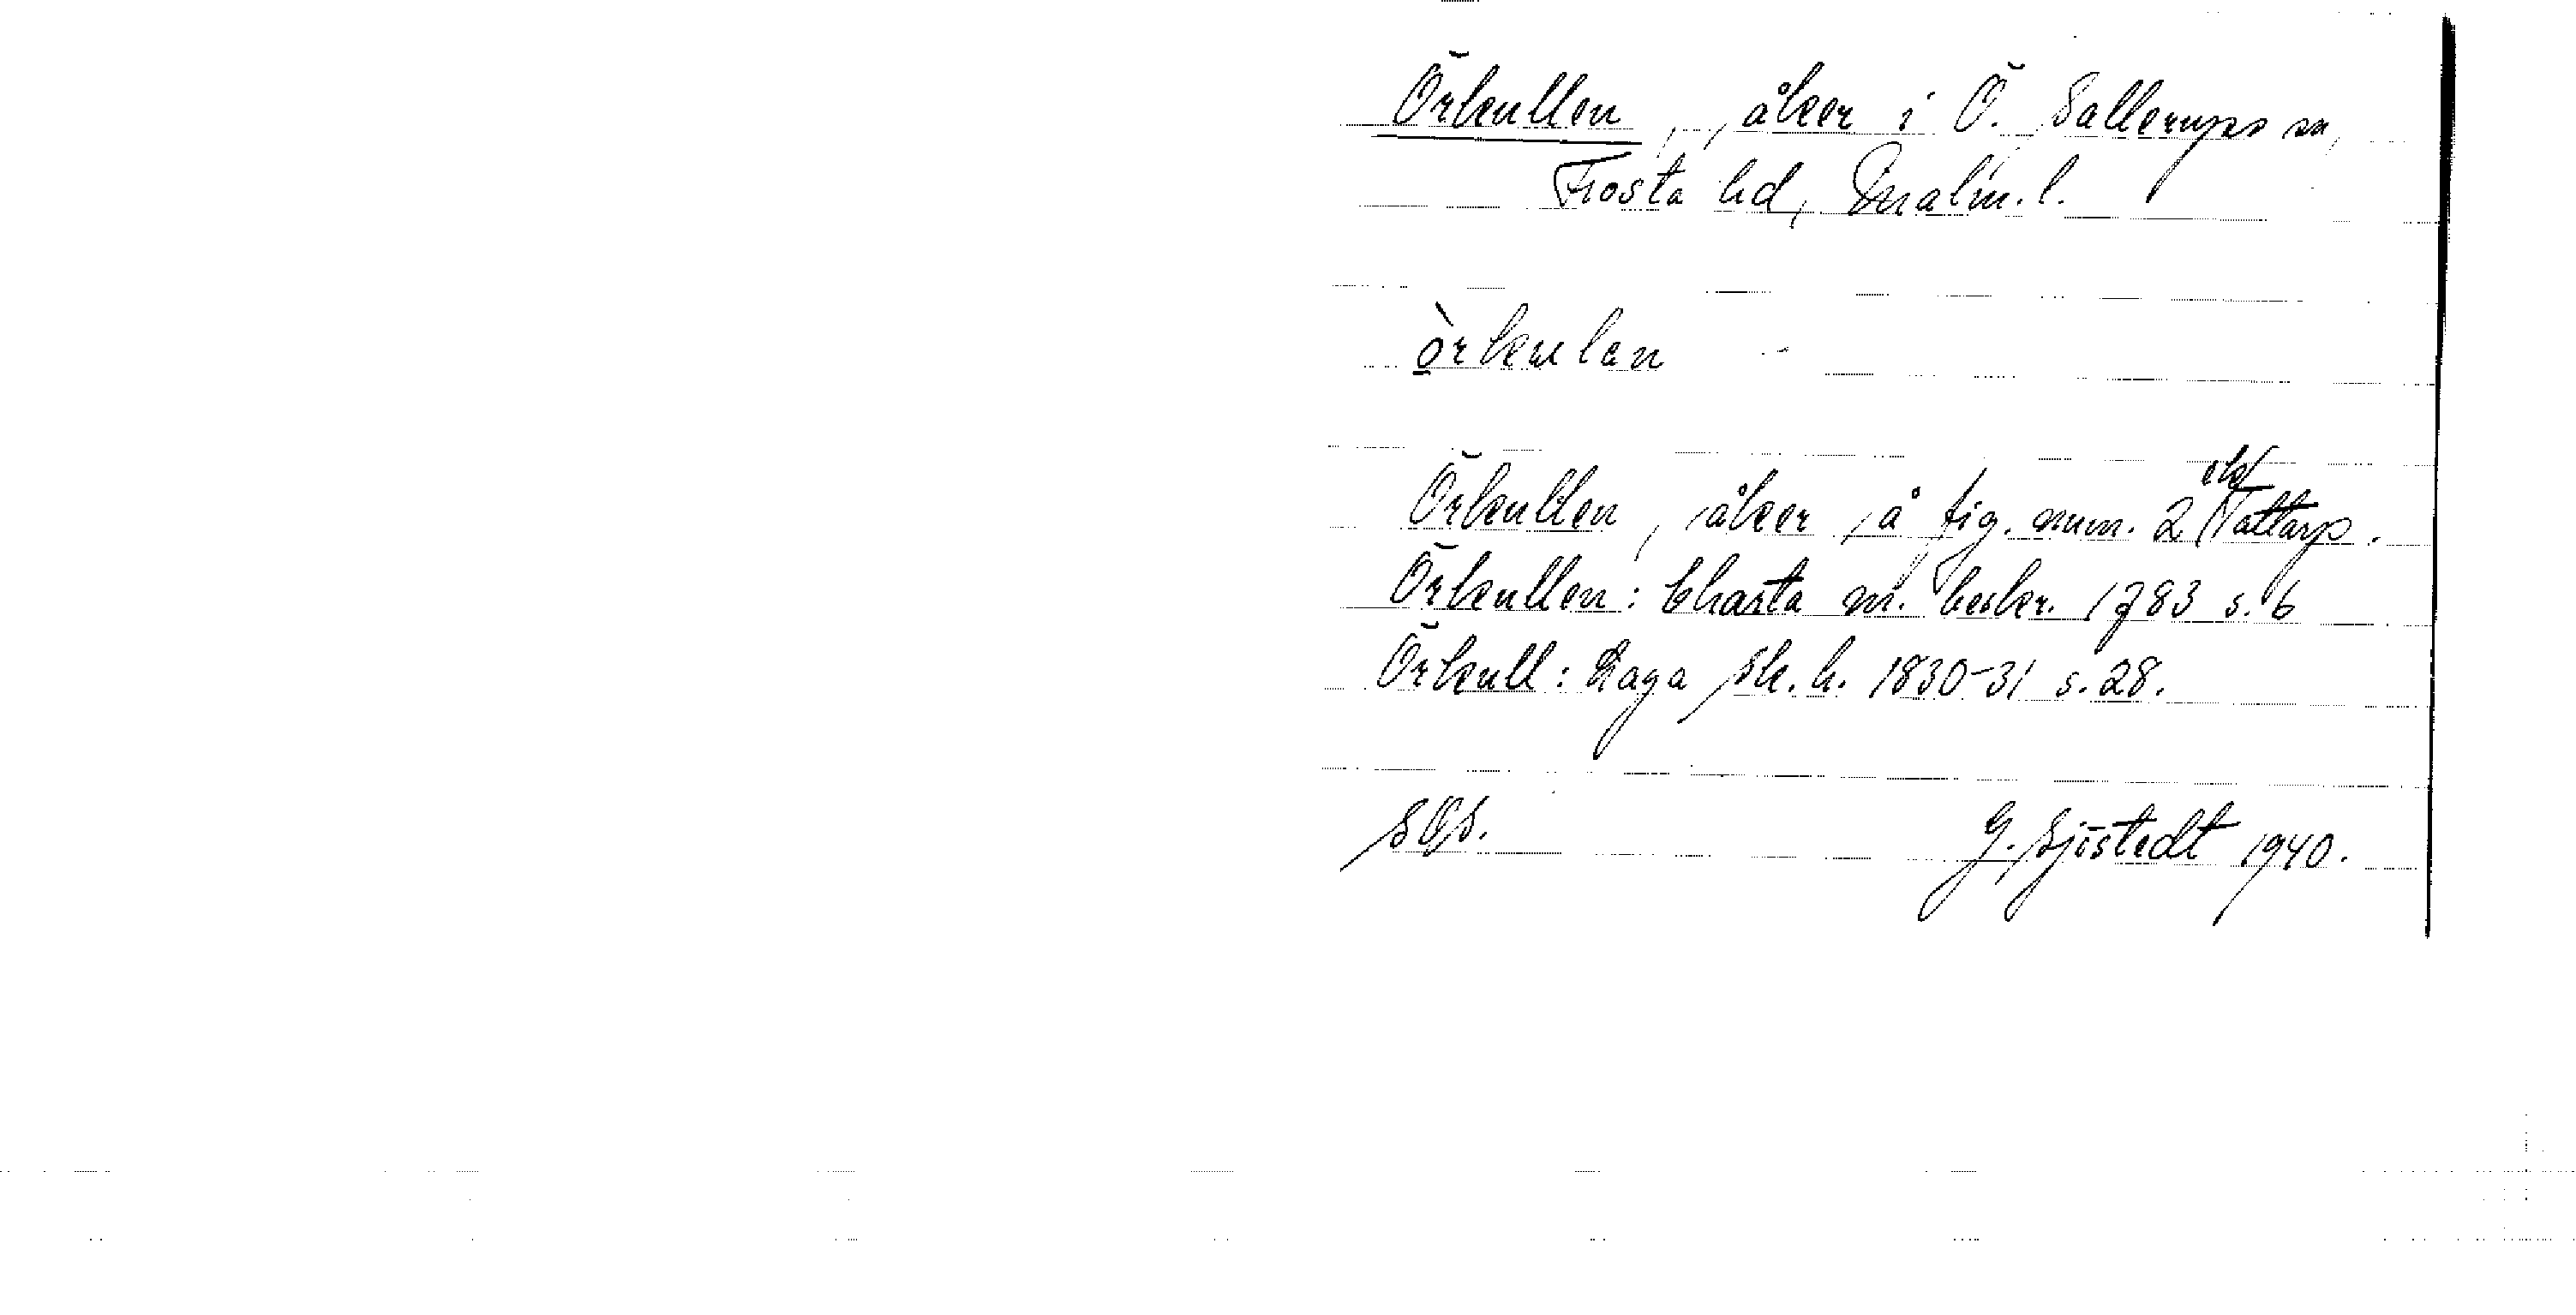 Örkullen, åker i Ö. Sallerups sn,
Frosta hd, Malm. l.
òrkulan
Örkullen, åker å fig. num. 2 Tattarp.
Örkullen: Charta m. beskr. 1783 s. 6
Örkull: Laga sk. h. 1830-31 s. 28.
SOS. G. Sjöstedt 1940.